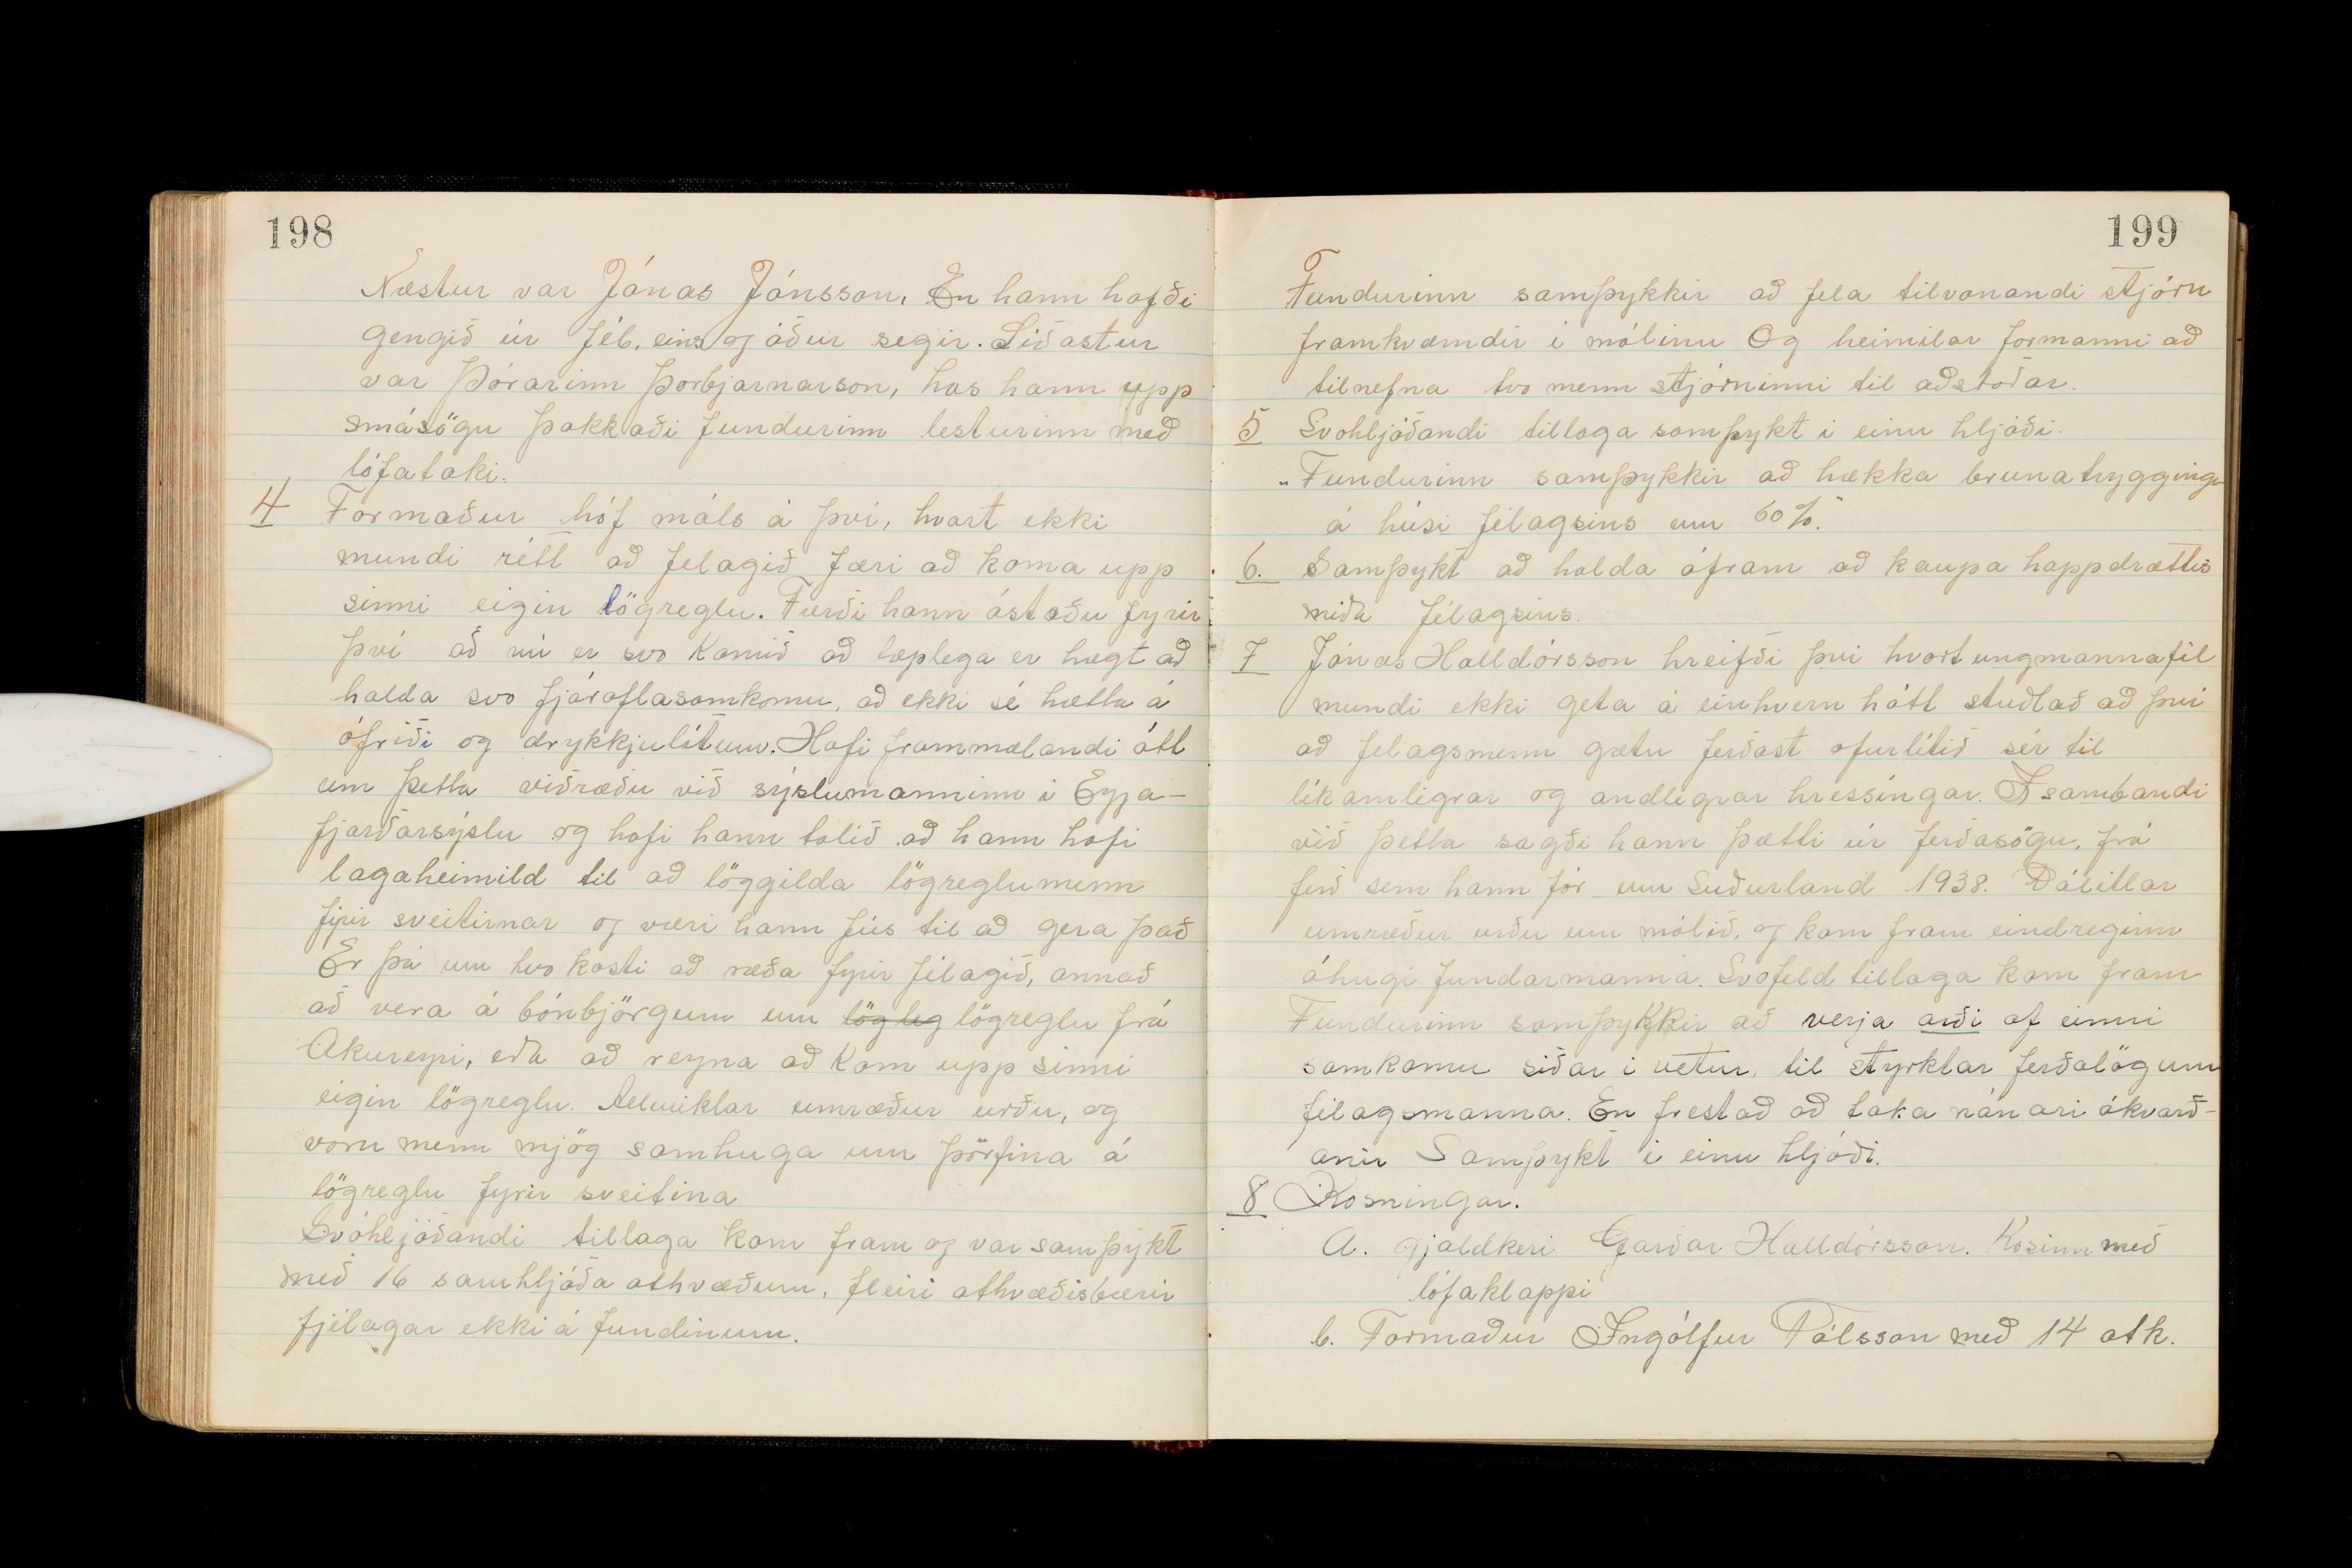 198
Næstur var Jónas Jónsson, En hann hafði
gengið úr féb. eins og áður segir. Síðastur
var Þórarinn Þorbjarnarson, las hann upp
smásögu þakkaði fundurinn lesturinn með
lófataki.
4 Formaður hóf máls á því, hvort ekki
mundi rétt að felagið færi að koma upp
sinni eigin lögreglu. Færði hann ástæðu fyrir
því að nú er svo komið að læplega er hægt að
halda svo fjáraflasamkomu, að ekki sé hætta á
ófriði og drykkjulátum. Hafi frammælandi átt
um þetta viðræðu við sýslumanninn i Eyja-
fjarðarsýslu og hafi hann talið að hann hafi
lagaheimild til að löggilda lögreglumenn
fyrir sveitirnar og væri hann fús til að gera það
Er þá um tvo kosti að ræða fyrir félagið, annað
að vera á bónbjörgum um lögleg lögreglu frá
Akureyri, eða að reyna að kom upp sinni
eigin lögreglu. Allmiklar umræður urðu, og
voru menn mjög samhuga um þörfina á
lögreglu fyrir sveitina
Svohljóðandi tillaga kom fram og var samþykt
með 16 samhljóða athvæðum, fleiri athvæðisbærir
fjélagar ekki á fundinum.
199
Fundurinn samþykkir að fela tilvonandi stjórn
framkvæmdir i málinu Og heimilar formanni að
tilnefna tvo menn stjórninni til aðstoðar.
5 Svohljóðandi tillaga samþykt i einu hljóði.
"Fundurinn samþykkir að hækka brunatryggingu
á húsi félagsins um 60%."
6. Samþykt að halda áfram að kaupa happdrættis
miða félagsins.
7 Jónas Halldórsson hreifði því hvort ungmannafél
mundi ekki geta á einhvern hátt stuðlað að því
að felagsmenn gætu ferðast ofurlítið sér til
líkamligrar og andlegrar hressingar. Í sambandi
við þetta sagði hann þætti úr ferðasögu, frá
ferð sem hann fór um Suðurland 1938. Dálitlar
umræður urðu um málið, og kom fram eindreginn
áhugi fundarmanna. Svofeld tillaga kom fram
Fundurinn samþykkir að verja arði af einni
samkomu siðar i vetur, til styrktar ferðalögum
félagsmanna. En frestað að taka nánari ákvarð-
anir Samþykt i einu hljóði.
8 Kosningar.
A. gjaldkeri Garðar Halldórsson. Kosinn með
lófaklappi
b. Formaður Ingólfur Pálsson með 14 atk.